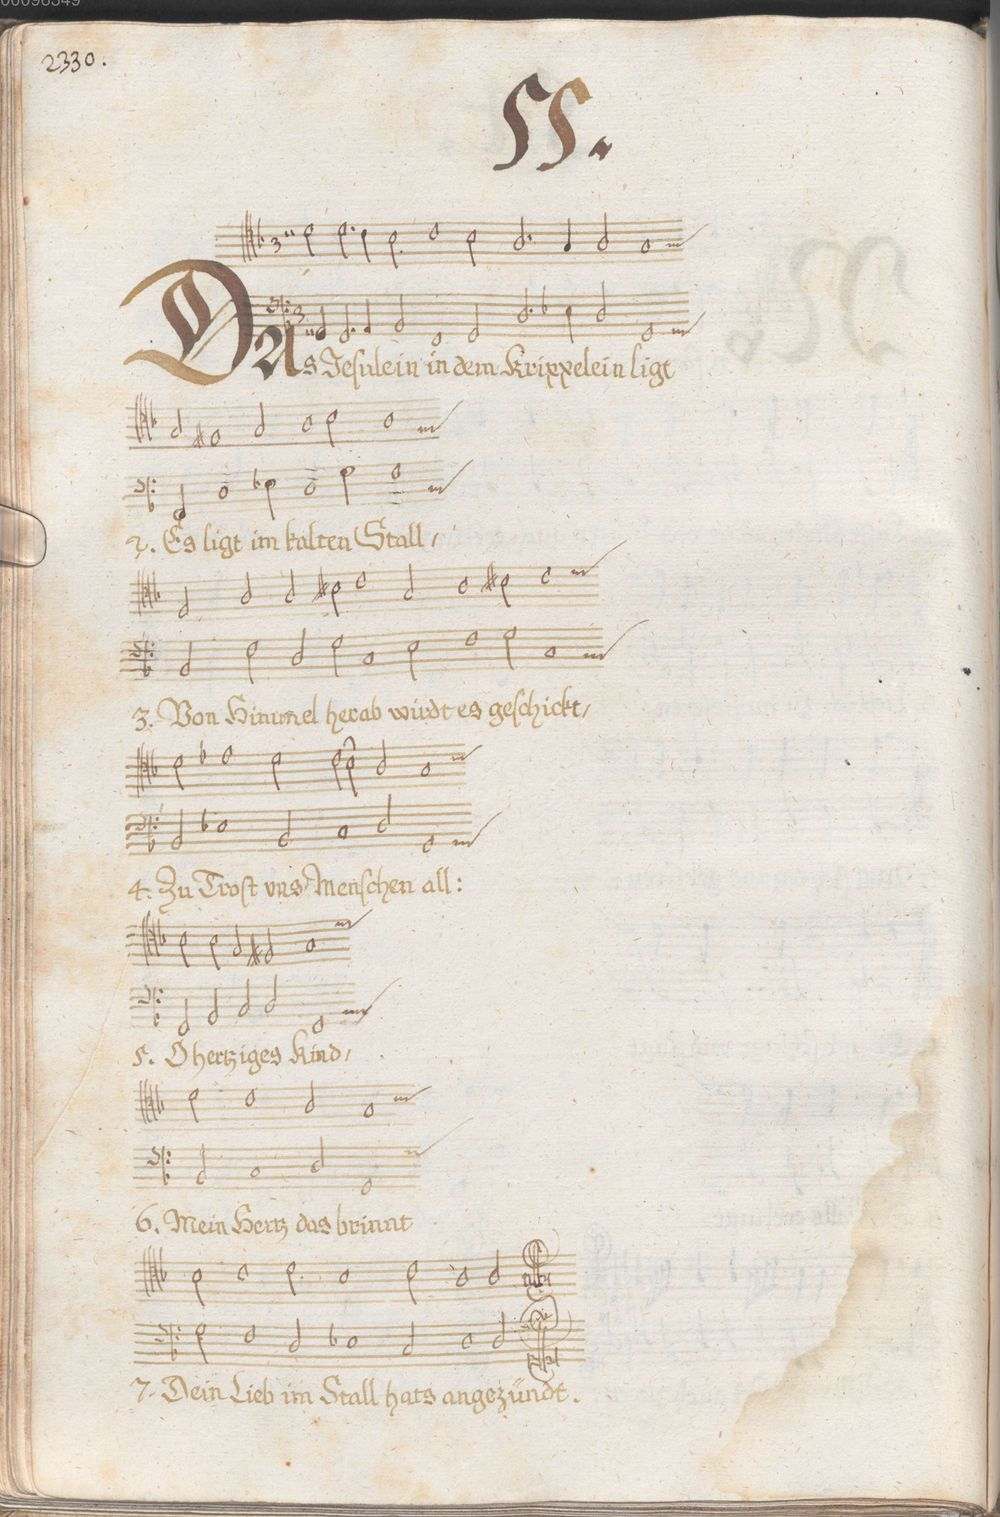 00096349
2330.
55.
DAs Jesulein in dem Krippelein ligt
2. Es ligt im kalten Stall,
3. Von Himmel herab würdt es geschickt,
4. Zu Trost uns Menschen all:
5. O hertziges Kind,
6. Mein Hertz das brinnt
7. Dein Lieb im Stall hats angezündt.